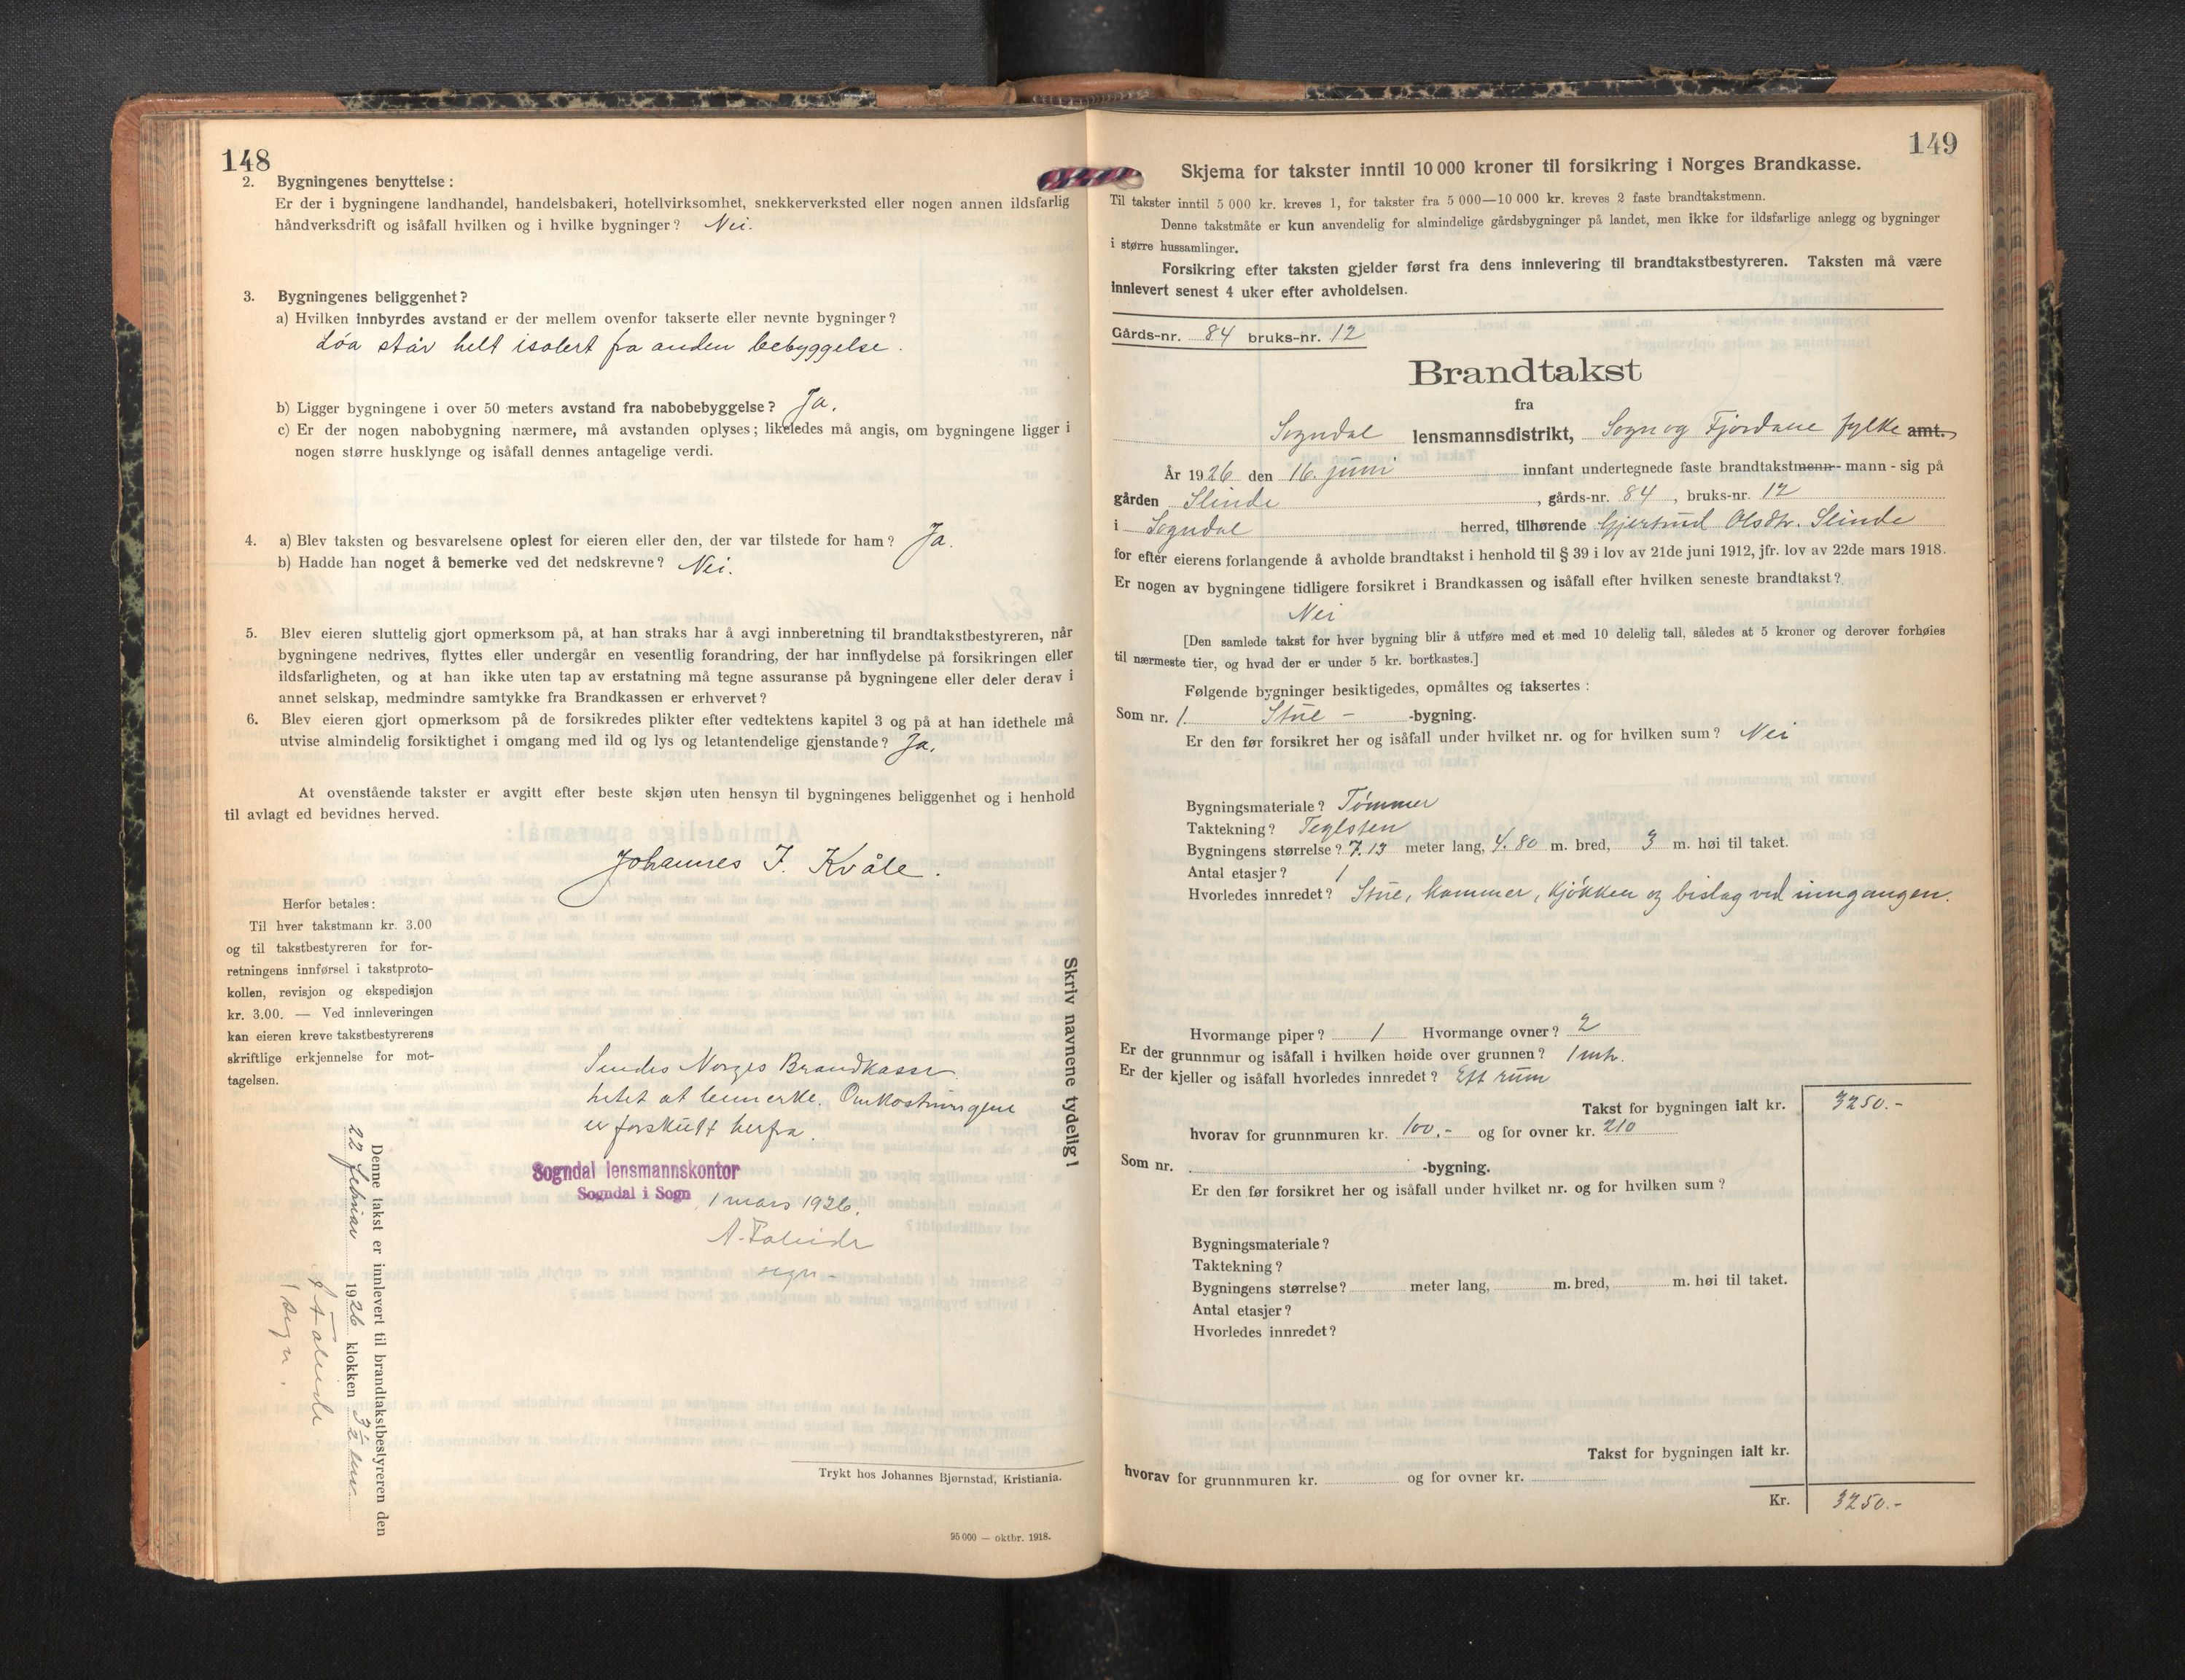 148
2. Bygningenes benyttelse:
Er der i bygningene landhandel, handelsbakeri, hotellvirksomhet, snekkerverksted eller nogen annen ildsfarlig
håndverksdrift og isåfall hvilken og i hvilke bygninger? Nei.
3. Bygningenes beliggenhet?
a) Hvilken innbyrdes avstand er der mellem ovenfor takserte eller nevnte bygninger?
Löa står helt isolert fra anden bebyggelse.
b) Ligger bygningene i over 50 meters avstand fra nabobebyggelse? Ja.
c) Er der nogen nabobygning nærmere, må avstanden oplyses; likeledes må angis, om bygningene ligger i
nogen større husklynge og isåfall dennes antagelige verdi.
4. a) Blev taksten og besvarelsene oplest for eieren eller den, der var tilstede for ham? Ja.
b) Hadde han noget å bemerke ved det nedskrevne? Nei.
5. Blev eieren sluttelig gjort opmerksom på, at han straks har å avgi innberetning til brandtakstbestyreren, når
bygningene nedrives, flyttes eller undergår en vesentlig forandring, der har innflydelse på forsikringen eller
ildsfarligheten, og at han ikke uten tap av erstatning må tegne assuranse på bygningene eller deler derav i
annet selskap, medmindre samtykke fra Brandkassen er erhvervet?
6. Blev eieren gjort opmerksom på de forsikredes plikter efter vedtektens kapitel 3 og på at han idethele må
utvise almindelig forsiktighet i omgang med ild og lys og letantendelige gjenstande? Ja.
At ovenstående takster er avgitt efter beste skjøn uten hensyn til bygningenes beliggenhet og i henhold
til avlagt ed bevidnes herved.
Johannes J. Kvåle.
Herfor betales:
Til hver takstmann kr. 3.00
og til takstbestyreren for for-
retningens innførsel i takstproto-
kollen, revisjon og ekspedisjon
kr. 3.00. — Ved innleveringen
kan eieren kreve takstbestyrerens
skriftlige erkjennelse for mot-
tagelsen.
Skriv navnene tydelig!
Sendes Norges Brandkasse.
Intet at bemerke. Omkostningene
er forskutt herfra.
Sogndal lensmannskontor
Sogndal i Sogn 1 mars 1926.
Denne takst er innlevert til brandtakstbestyreren den
22 februar 1926 klokken 3 1/2
Trykt hos Johannes Bjørnstad, Kristiania.
95 000 — oktbr. 1918.
149
Skjema for takster inntil 10 000 kroner til forsikring i Norges Brandkasse.
Til takster inntil 5 000 kr. kreves 1, for takster fra 5 000—10 000 kr. kreves 2 faste brandtakstmenn.
Denne takstmåte er kun anvendelig for almindelige gårdsbygninger på landet, men ikke for ildsfarlige anlegg og bygninger
i større hussamlinger.
Forsikring efter taksten gjelder først fra dens innlevering til brandtakstbestyreren. Taksten må være
innlevert senest 4 uker efter avholdelsen.
Gårds-nr. 84 bruks-nr. 12
Brandtakst
fra
Sogndal lensmannsdistrikt, Sogn og Fjordane fylke amt.
År 1926 den 16. juni innfant undertegnede faste brandtakstmenn- mann - sig på
gården Slinde, gårds-nr. 84, bruks-nr. 12
i Sogndal herred, tilhørende Gjertrud Olsdtr. Slinde
for efter eierens forlangende å avholde brandtakst i henhold til § 39 i lov av 21de juni 1912, jfr. lov av 22de mars 1918.
Er nogen av bygningene tidligere forsikret i Brandkassen og isåfall efter hvilken seneste brandtakst?
Nei
[Den samlede takst for hver bygning blir å utføre med et med 10 delelig tall, således at 5 kroner og derover forhøies
til nærmeste tier, og hvad der er under 5 kr. bortkastes.]
Følgende bygninger besiktigedes, opmåltes og taksertes:
Som nr. 1. Stue - -bygning.
Er den før forsikret her og isåfall under hvilket nr. og for hvilken sum? Nei
Bygningsmateriale? Tömmer
Taktekning? Teglsten
Bygningens størrelse? 7.13 meter lang, 4.80 m. bred, 3 m. høi til taket.
Antal etasjer? 1
Hvorledes innredet? Stue, kammer, kjökken og bislag ved inngangen.
Hvormange piper? 1 Hvormange ovner? 2
Er der grunnmur og isåfall i hvilken høide over grunnen? 1 mtr.
Er der kjeller og isåfall hvorledes innredet? Ett rum
Takst for bygningen ialt kr. 3250.-
hvorav for grunnmuren kr. 100.- og for ovner kr. 210
Som nr. -bygning.
Er den før forsikret her og isåfall under hvilket nr. og for hvilken sum?
Bygningsmateriale?
Taktekning?
Bygningens størrelse? meter lang, m. bred, m. høi til taket.
Antal etasjer?
Hvorledes innredet?
Takst for bygningen ialt kr.
hvorav for grunnmuren kr. og for ovner kr.
Kr. 3250.-